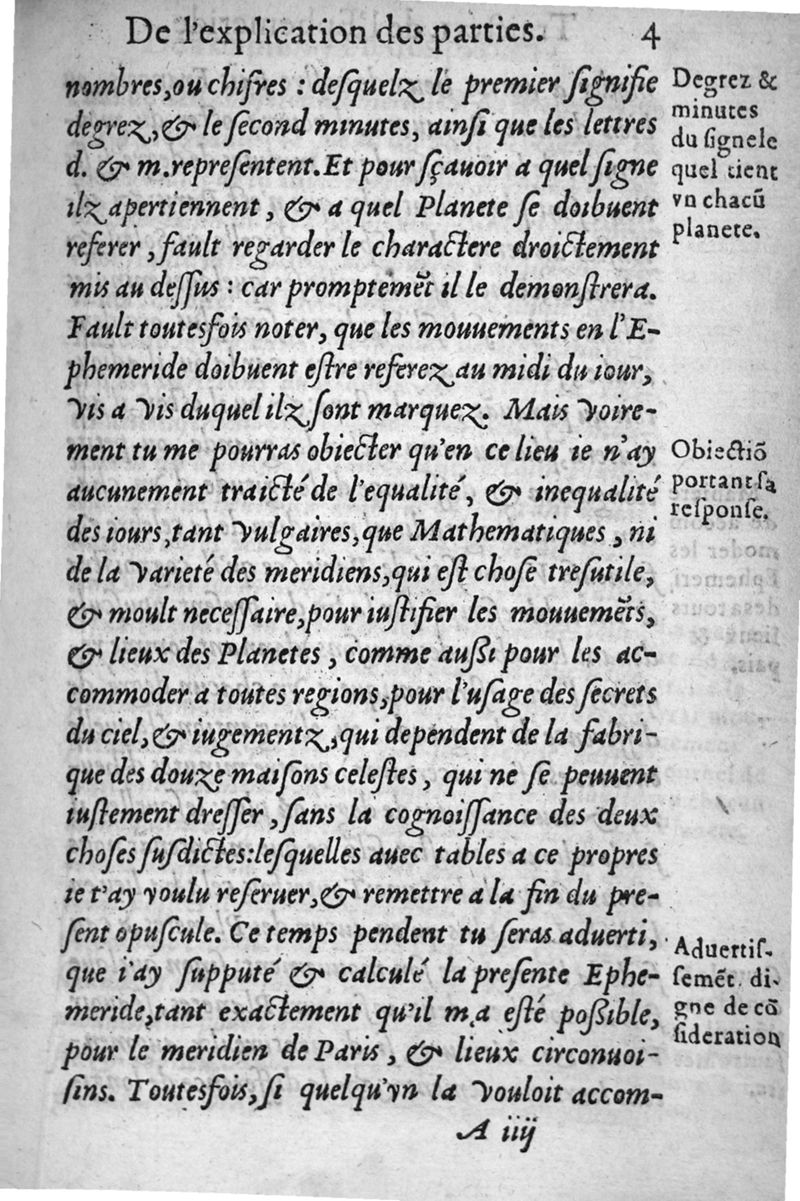 De l'explication des parties. 4
nombres, ou chifres : desquelz le premier signifie
degrez, & le second minutes, ainsi que les lettres
d. & m. representent. Et pour sçauoir a quel signe
ilz apertiennent, & a quel Planete se doibuent
referer, fault regarder le charactere droictement
mis au dessus : car promptemẽt il le demonstrera.
Fault toutesfois noter, que les mouuements en l'E-
phemeride doibuent estre referez au midi du iour,
vis a vis duquel ilz sont marquez. Mais voire-
ment tu me pourras obiecter qu'en ce lieu ie n'ay
aucunement traicté de l'equalité, & inequalité
des iours, tant vulgaires, que Mathematiques, ni
de la varieté des meridiens, qui est chose tresutile,
& moult necessaire, pour iustifier les mouuemẽts,
& lieux des Planetes, comme aussi pour les ac-
commoder a toutes regions, pour l'usage des secrets
du ciel, & iugementz, qui dependent de la fabri-
que des douze maisons celestes, qui ne se peuuent
iustement dresser, sans la cognoissance des deux
choses susdictes: lesquelles auec tables a ce propres
ie t'ay voulu reseruer, & remettre a la fin du pre-
sent opuscule. Ce temps pendent tu seras aduerti,
que i'ay supputé & calculé la presente Ephe-
meride, tant exactement qu'il m,a esté possible,
pour le meridien de Paris, & lieux circonuoi-
sins. Toutesfois, si quelqu'vn la vouloit accom-
A iiij
Degrez &
minutes
du signe le
quel tient
vn chacũ
planete.
Obiectiõ
portant sa
response.
Aduertis-
semẽt di-
gne de cõ
sideration